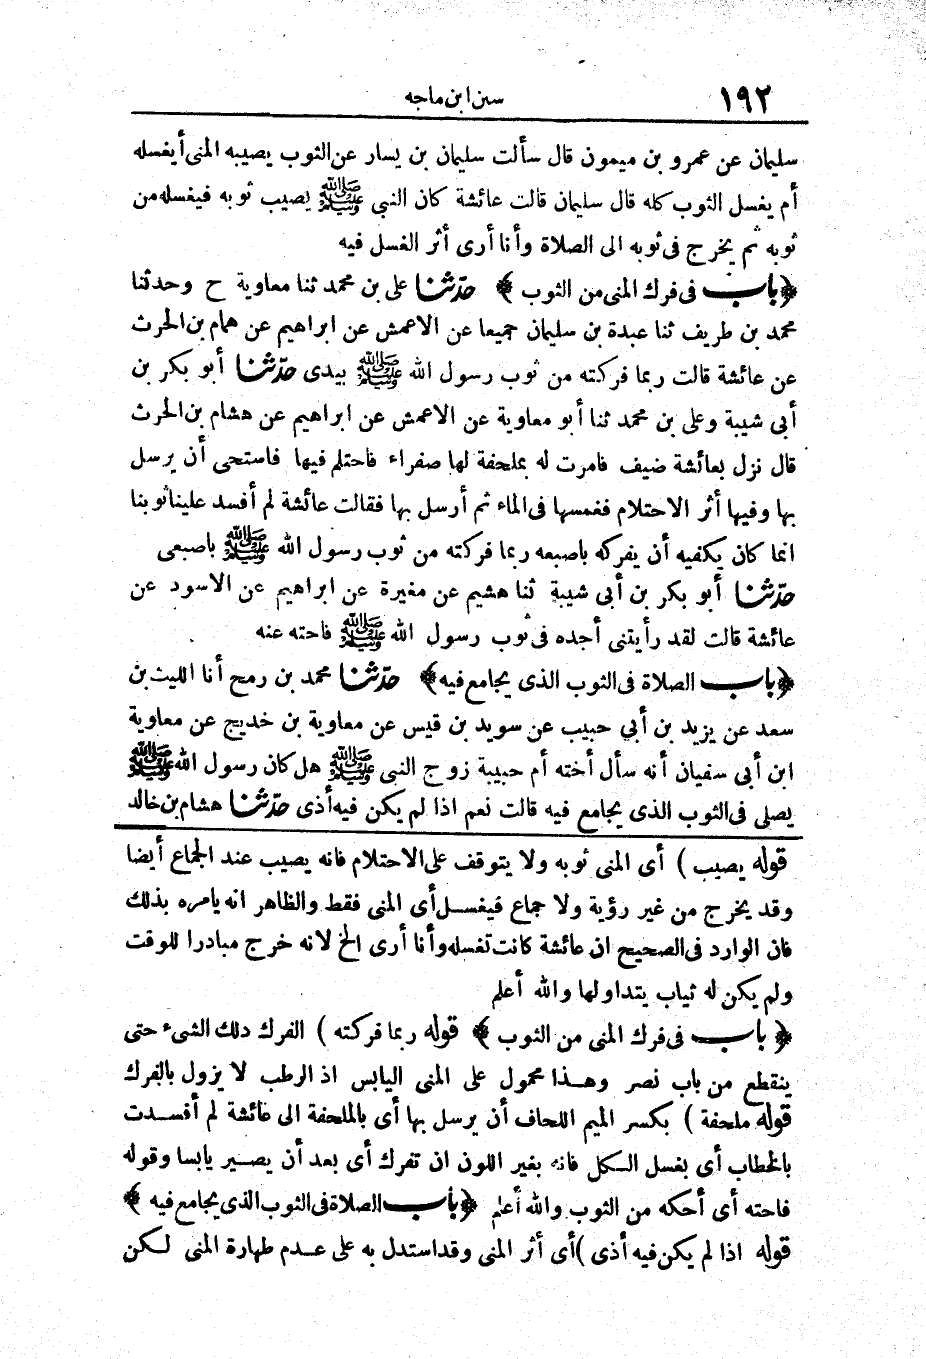 ١٩٢ سنن ابن ماجه
سليمان عن عمرو بن ميمون قال سألت سليمان بن يسار عن الثوب يصيبه المنى أيغسله
أم يغسل الثوب كله قال سليمان قالت عائشة كان النبى ﷺ يصيب ثوبه فيغسله من
ثوبه ثم يخرج فى ثوبه الى الصلاة وأنا أرى أثر الغسل فيه
﴿باب فى فرك المنى من الثوب﴾ حدّثنا على بن محمد ثنا معاوية ح وحدثنا
محمد بن طريف ثنا عبدة بن سليمان جميعا عن الاعمش عن ابراهيم عن همام بن الحرث
عن عائشة قالت ربما فركته من ثوب رسول الله ﷺ بيدى حدّثنا أبو بكر بن
أبى شيبة وعلى بن محمد ثنا أبو معاوية عن الاعمش عن ابراهيم عن هشام بن الحرث
قال نزل بعائشة ضيف فامرت له بملحفة لها صفراء فاحتلم فيها فاستحى أن يرسل
بها وفيها أثر الاحتلام فغمسها فى الماء ثم أرسل بها فقالت عائشة لم أفسد علينا ثوبنا
انما كان يكفيه أن يفركه باصبعه ربما فركته من ثوب رسول الله ﷺ باصبعى
حدّثنا أبو بكر بن أبى شيبة ثنا هشيم عن مغيرة عن ابراهيم عن الاسود عن
عائشة قالت لقد رأيتنى أجده فى ثوب رسول الله ﷺ فاحته عنه
﴿باب الصلاة فى الثوب الذى يجامع فيه﴾ حدّثنا محمد بن رمح أنا الليث بن
سعد عن يزيد بن أبي حبيب عن سويد بن قيس عن معاوية بن خديج عن معاوية
ابن أبى سفيان أنه سأل أخته أم حبيبة زوج النبى ﷺ هل كان رسول الله ﷺ
يصلى فى الثوب الذى يجامع فيه قالت نعم اذا لم يكن فيه أذى حدّثنا هشام بن خالد
قوله يصيب ) أى المنى ثوبه ولا يتوقف على الاحتلام فانه يصيب عند الجماع أيضا
وقد يخرج من غير رؤية ولا جماع فيغسل أى المنى فقط والظاهر انه يامره بذلك
فان الوارد فى الصحيح ان عائشة كانت تغسله وأنا أرى الخ لانه خرج مبادرا للوقت
ولم يكن له ثياب يتداولها والله أعلم
﴿باب فى فرك المنى من الثوب﴾ قوله ربما فركته ) الفرك دلك الشىء حتى
ينقطع من باب نصر وهذا محمول على المنى اليابس اذ الرطب لا يزول بالفرك
قوله ملحفة ) بكسر الميم اللحاف أن يرسل بها أى بالملحفة الى عائشة لم أفسدت
بالخطاب أى بغسل الكل فانه يغير اللون ان تفرك أى بعد أن يصير يابسا وقوله
فاحته أى أحكه من الثوب والله أعلم ﴿باب الصلاة فى الثوب الذى يجامع فيه﴾
قوله اذا لم يكن فيه أذى ) أى أثر المنى وقد استدل به على عدم طهارة المنى لكن